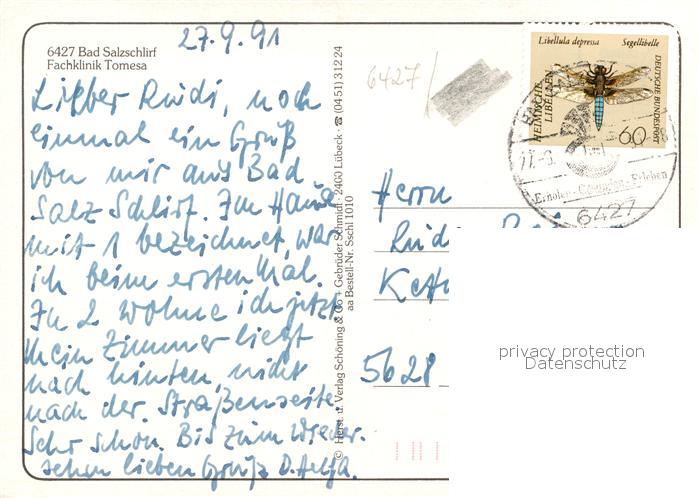 27.9.91
6427 Bad Salzschlirf
Fachklinik Tomesa
Lieber Rudi, noch
einmal ein Gruß
von mir aus Bad
Salz Schlirf. Im Hause
mit 1 bezeichnet, war
ich beim ersten Mal.
In 2 wohne ich jetzt
Mein Zimmer liegt
nach hinten, nicht
nach der Straßenseite.
Sehr schön. Bis zum Wieder-
sehen lieben Gruß D. Helga.
© Herst. u. Verlag Schöning & Co + Gebrüder Schmidt · 2400 Lübeck · ☎ (04 51) 3 12 24
aa Bestell-Nr. Sschl 1010
6427/
Libellula depressa Segellibelle
HEIMISCHE LIBELLEN
DEUTSCHE BUNDESPOST
60
6427
Herrn
Rudi
5628
privacy protection
Datenschutz